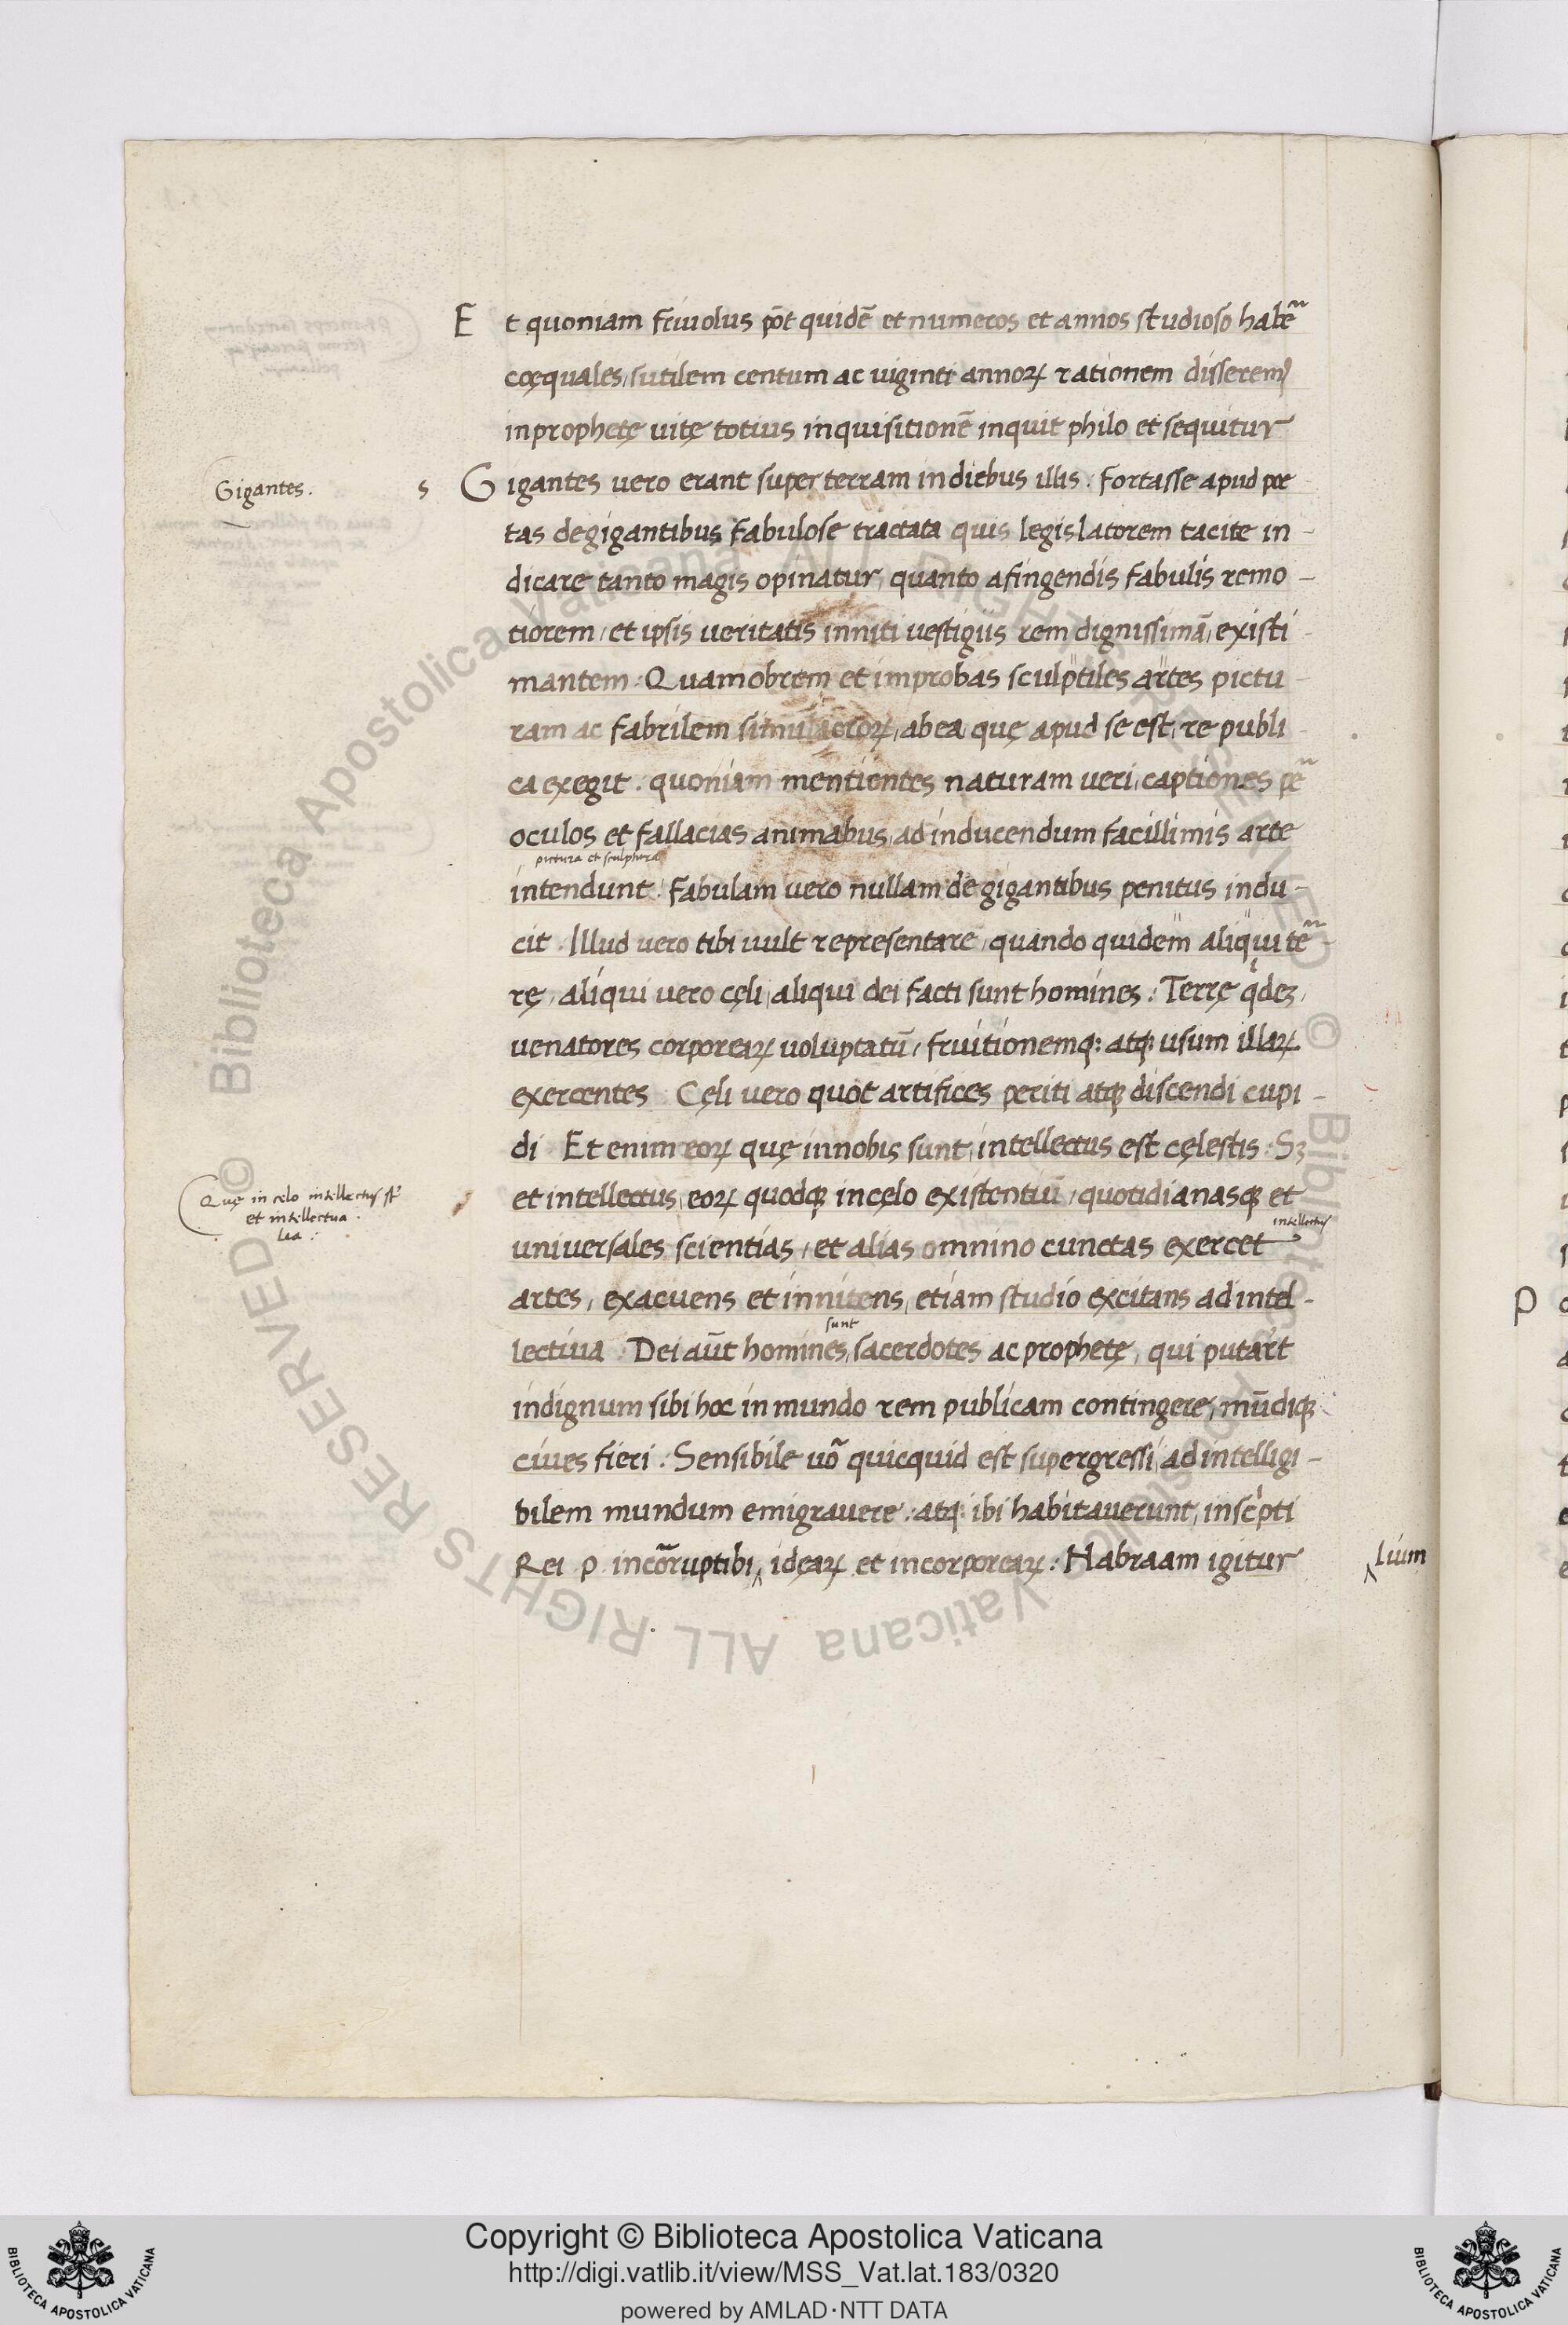 Et quoniam friuolus põt quidē et numeros et annos studioso habē˜
coęquales, sutilem centum ac uiginti annoꝝ rationem disserem⁹
in prophetę uitę totius inquisitionē inquit philo et sequitur
Gigantes.
s Gigantes vero erant super terram in diebus illis. Fortasse apud poe
tas de gigantibus fabulose tractata quis legislatorem tacite in-
dicare tanto magis opinatur, quanto a fingendis fabulis remo-
tiorem, et ipsis ueritatis inniti uestigiis rem dignissimā, existi
mantem. Quamobrem et improbas sculptiles artes pictu
ram ac fabrilem simulacroꝝ, ab ea quę apud se est, re publi
ca exegit. quoniam mentientes naturam ueri, captiones pe˜
oculos et fallacias animabus, ad inducendum facillimis arte
pictura et sculptura
intendunt. Fabulam vero nullam de gigantibus penitus indu-
cit. Illud vero tibi uult representare, quando quidem aliqui te˜
rę, aliqui vero cęli, aliqui dei facti sunt homines. Terrę qⁱdeꝫ,
venatores corporeaꝝ uoluptatū, fruitionemq: atq: usum illaꝝ
exercentes Cęli vero quot artifices periti atqꝫ discendi cupi-
di Et enim eoꝝ quę in nobis sunt, intellectus est cęlestis. Sꝫ
Quę in celo intellectus st̄
et intellectua
lia.
et intellectus, eoꝝ quoqꝫ in cęlo existentiū, quotidianasqꝫ et
intellectus
universales scientias, et alias omnino cunctas exercet
artes, exacuens et innitens, etiam studio excitans ad intel-
sunt
lectiua Dei aūt homines, sacerdotes ac prophetę, qui putart
indignum sibi hoc in mundo rem publicam contingere, mūdiqꝫ
ciues fieri. Sensibile uõ quicquid est supergressi, ad intelligi-
bilem mundum emigrauere. atq: ibi habitauerunt, inscⁱpti
Rei p. incõruptibi‸ idęaꝝ et incorporeaꝝ. Habraam igitur
‸lium
Copyright © Biblioteca Apostolica Vaticana
http://digi.vatlib.it/view/MSS_Vat.lat.183/0320
powered by AMLAD·NTT DATA
BIBLIOTECA APOSTOLICA VATICANA
BIBLIOTECA APOSTOLICA VATICANA
© Biblioteca Apostolica Vaticana ALL RIGHTS RESERVED © Biblioteca Apostolica Vaticana ALL RIGHTS RESERVED